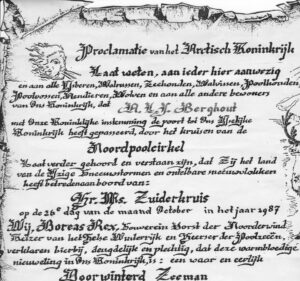 Proclamatie van het Arctisch Koninkrijk
Laat weten, aan ieder hier aanwezig
en aan alle IJsberen, Walrussen, Zeehonden, Walvissen, Poolhonden,
Poolvossen, Rendieren, Wolven en aan alle andere bewoners
van Ons Koninkrijk, dat Berghout
met Onze Koninklijke instemming de poort tot Ons IJzelijke
Koninkrijk heeft gepasseerd, door het kruisen van de
Noordpoolcirkel
Laat verder gehoord en verstaan zijn, dat Zij het land
van de IJzige Sneeuwstormen en ontelbare meeuwvlokken
heeft betreden aan boord van:
Hr. Ms. Zuiderkruis
op de 26e dag van de maand October in het jaar 1987
Wij, Boreas Rex, Souverein Vorst der Noordenwind
Keizer van het Witte Winterrijk en Heerser der Poolzeeën,
verklaren hierbij, deugdelijk en plechtig, dat deze warmbloedige
nieuweling in Ons Koninkrijk, is: een waar en eerlijk
Doorwinterd Zeeman